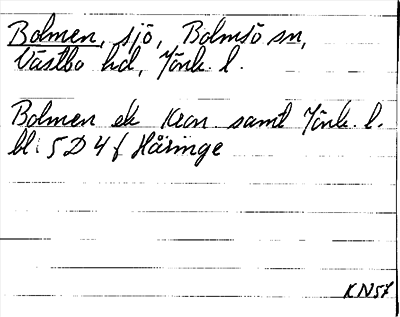 Bolmen, sjö, Bolmsö sn,
Västbo hd, Jönk. l.
Bolmen ek Kron. samt Jönk. l.
bl. 5D4f Håringe
KN57